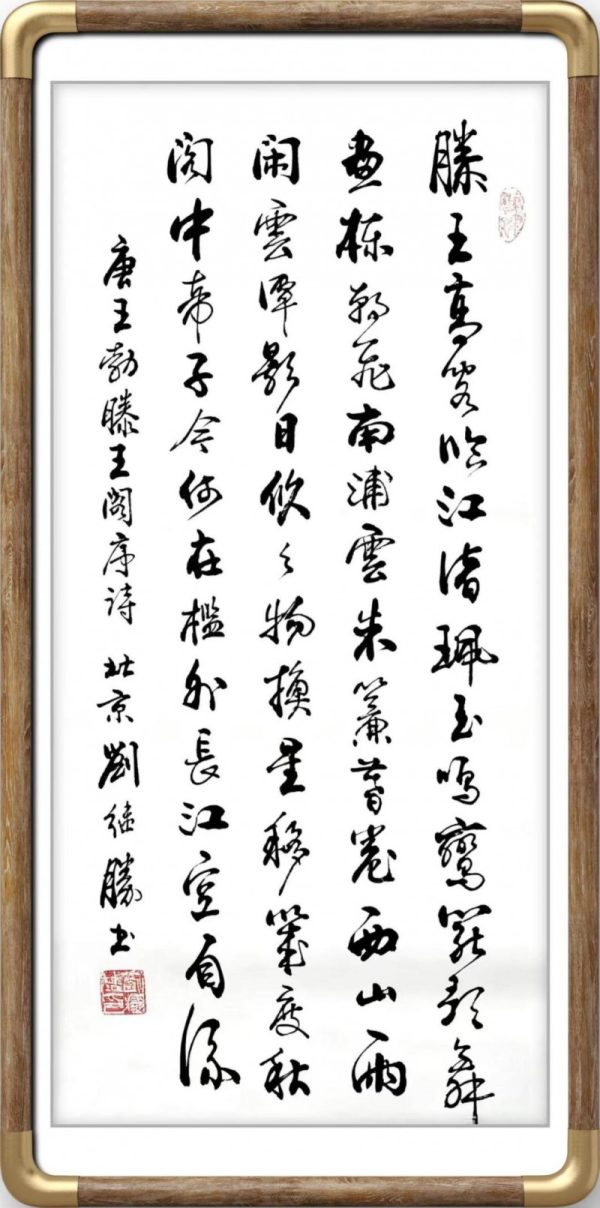 滕王高阁临江渚珮玉鸣鸾罷歌舞
畫栋朝飛南浦雲朱簾暮卷西山雨
闲雲潭影日悠々物换星移幾度秋
阁中帝子今何在檻外長江空自流
唐王勃滕王阁序诗 北京劉继勝书